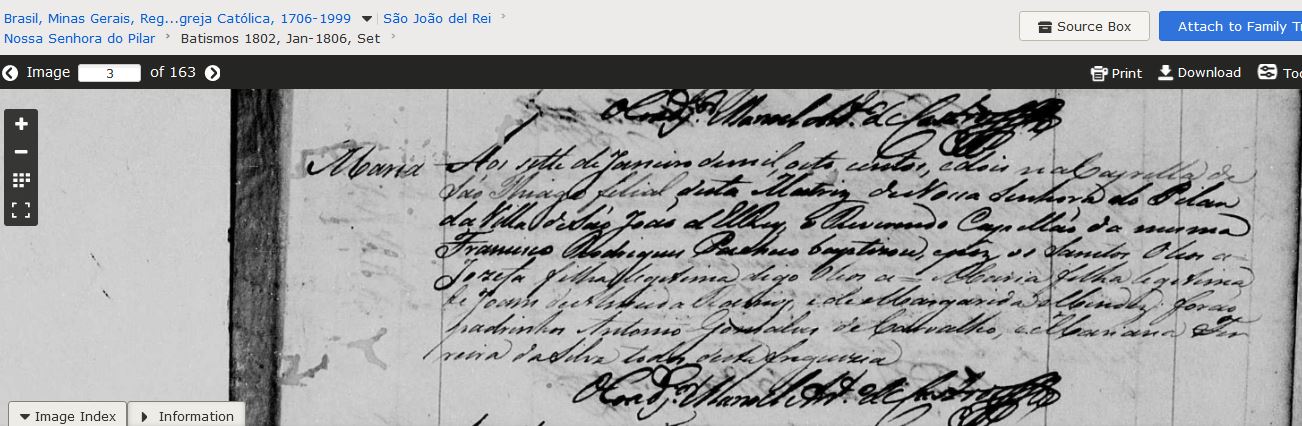 Brasil, Minas Gerais, Reg...greja Católica, 1706-1999 São João del Rei
Nossa Senhora do Pilar Batismos 1802, Jan-1806, Set
Source Box
Attach to Family T
Image 3 of 163
Print Download Too
Maria Aos sette de Janeiro de mil, oito centos, e dois na Capella de
São Thiago filial desta Matriz de Nossa Senhora do Pilar
da Villa de São João d'ElRey, o Reverendo Capellão da mesma
Francisco Rodrigues Pacheco baptizou, e poz os Santos Oleos a
Jozefa filha legitima digo Oleos a Maria filha legitima
de Joam de e de Margarida Mendes forão
padrinhos Antonio Gonsalves de Carvalho, e Mariana Fer
reira da Silva todos desta freguezia
O Coadj.r Manoel Ant.o de Castro
Image Index Information